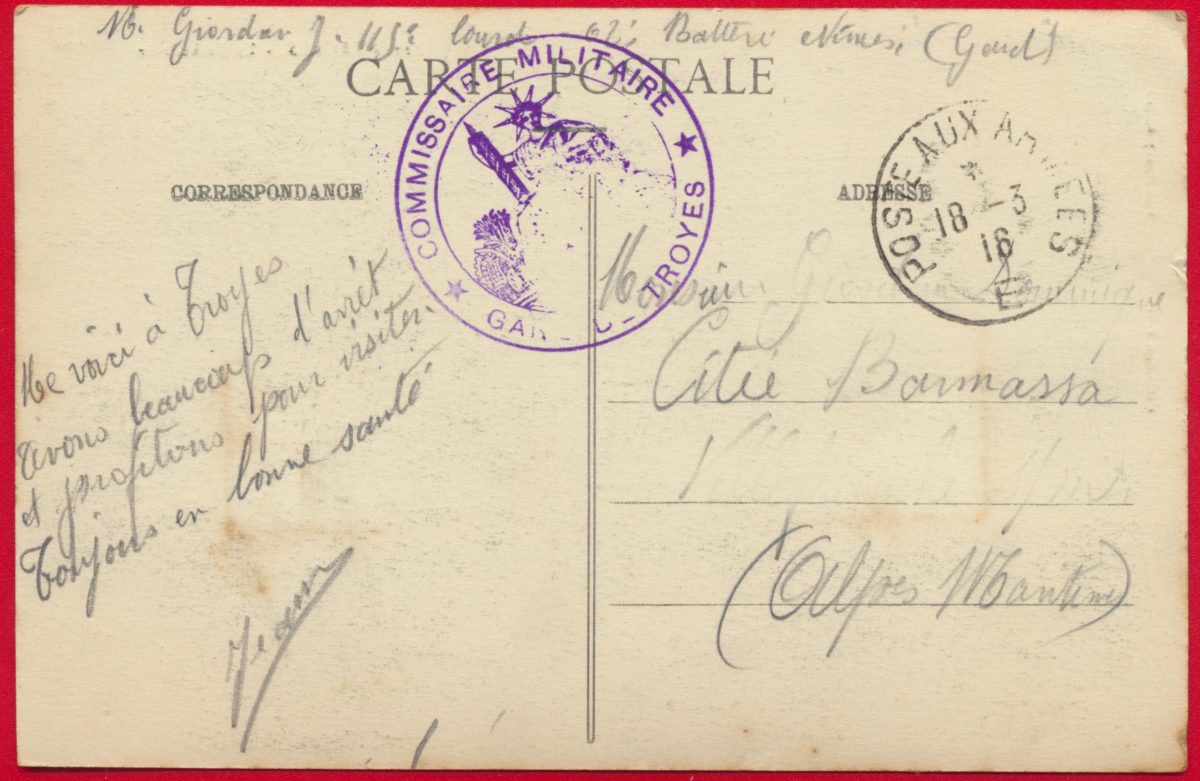 M. Giordan J. 115e lourde Batterie Nimes (Gard)
CARTE POSTALE
COMMISSAIRE MILITAIRE
GARE TROYES
CORRESPONDANCE
ADRESSE
POSTE AUX ARMEES
18 - 3
16
Me voici à Troyes
Avons beaucoup d'arrêt
et profitons pour visiter.
Toujours en bonne santé
Jean
Monsieur Giordan Dominique
Cité Barmassa
(Alpes Maritimes)